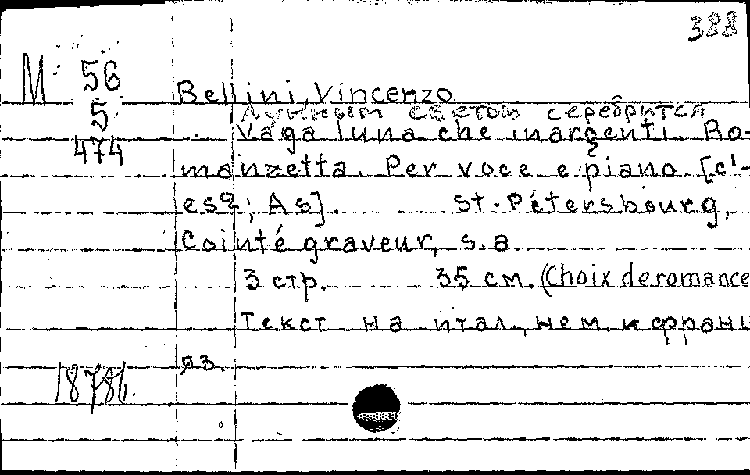 388
М 56
5
474
Bellini, Vincenzo
Лунным светом серебрится
Vaga luna che inargenti. Ro-
manzetta. Per voce e piano [c¹-
es²; As]. St.-Pétersbourg,
Cointé graveur, s.a.
3 стр. 35 см. (Choix de romance
Текст на итал., нем. и франц
18786